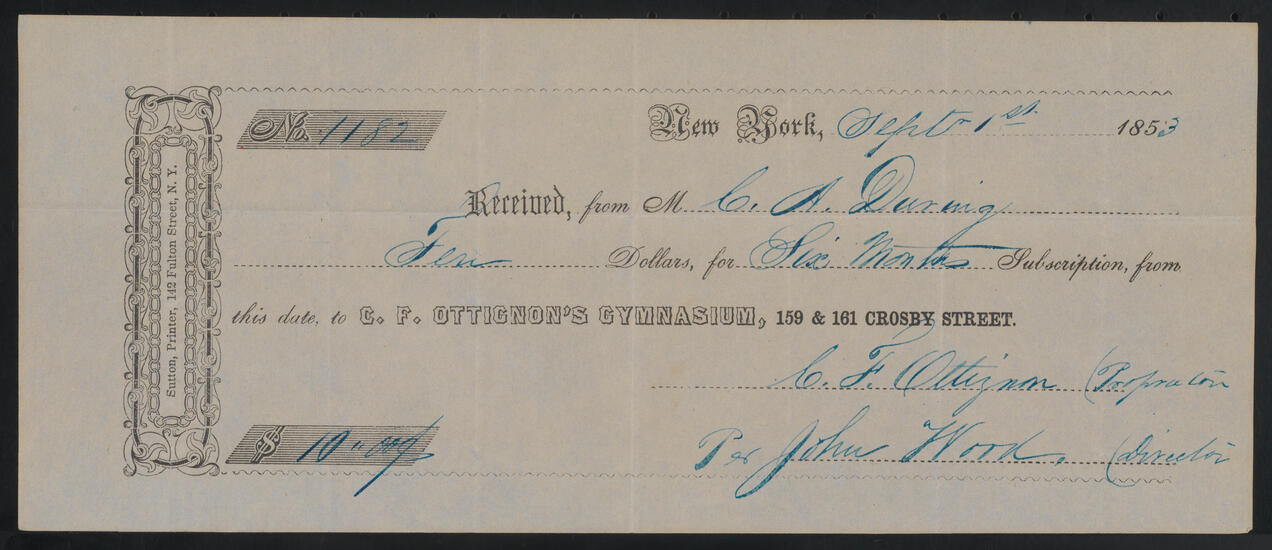 No. 1182
New York, Sept 1st 1853
Received, from M C. A. During
Ten Dollars, for Six Months Subscription, from
this date, to C. F. OTTIGNON'S GYMNASIUM, 159 & 161 CROSBY STREET.
C. F. Ottignon (Propraetor
$ 10 " 00/
Per John Wood, (Director
Sutton, Printer, 142 Fulton Street, N. Y.